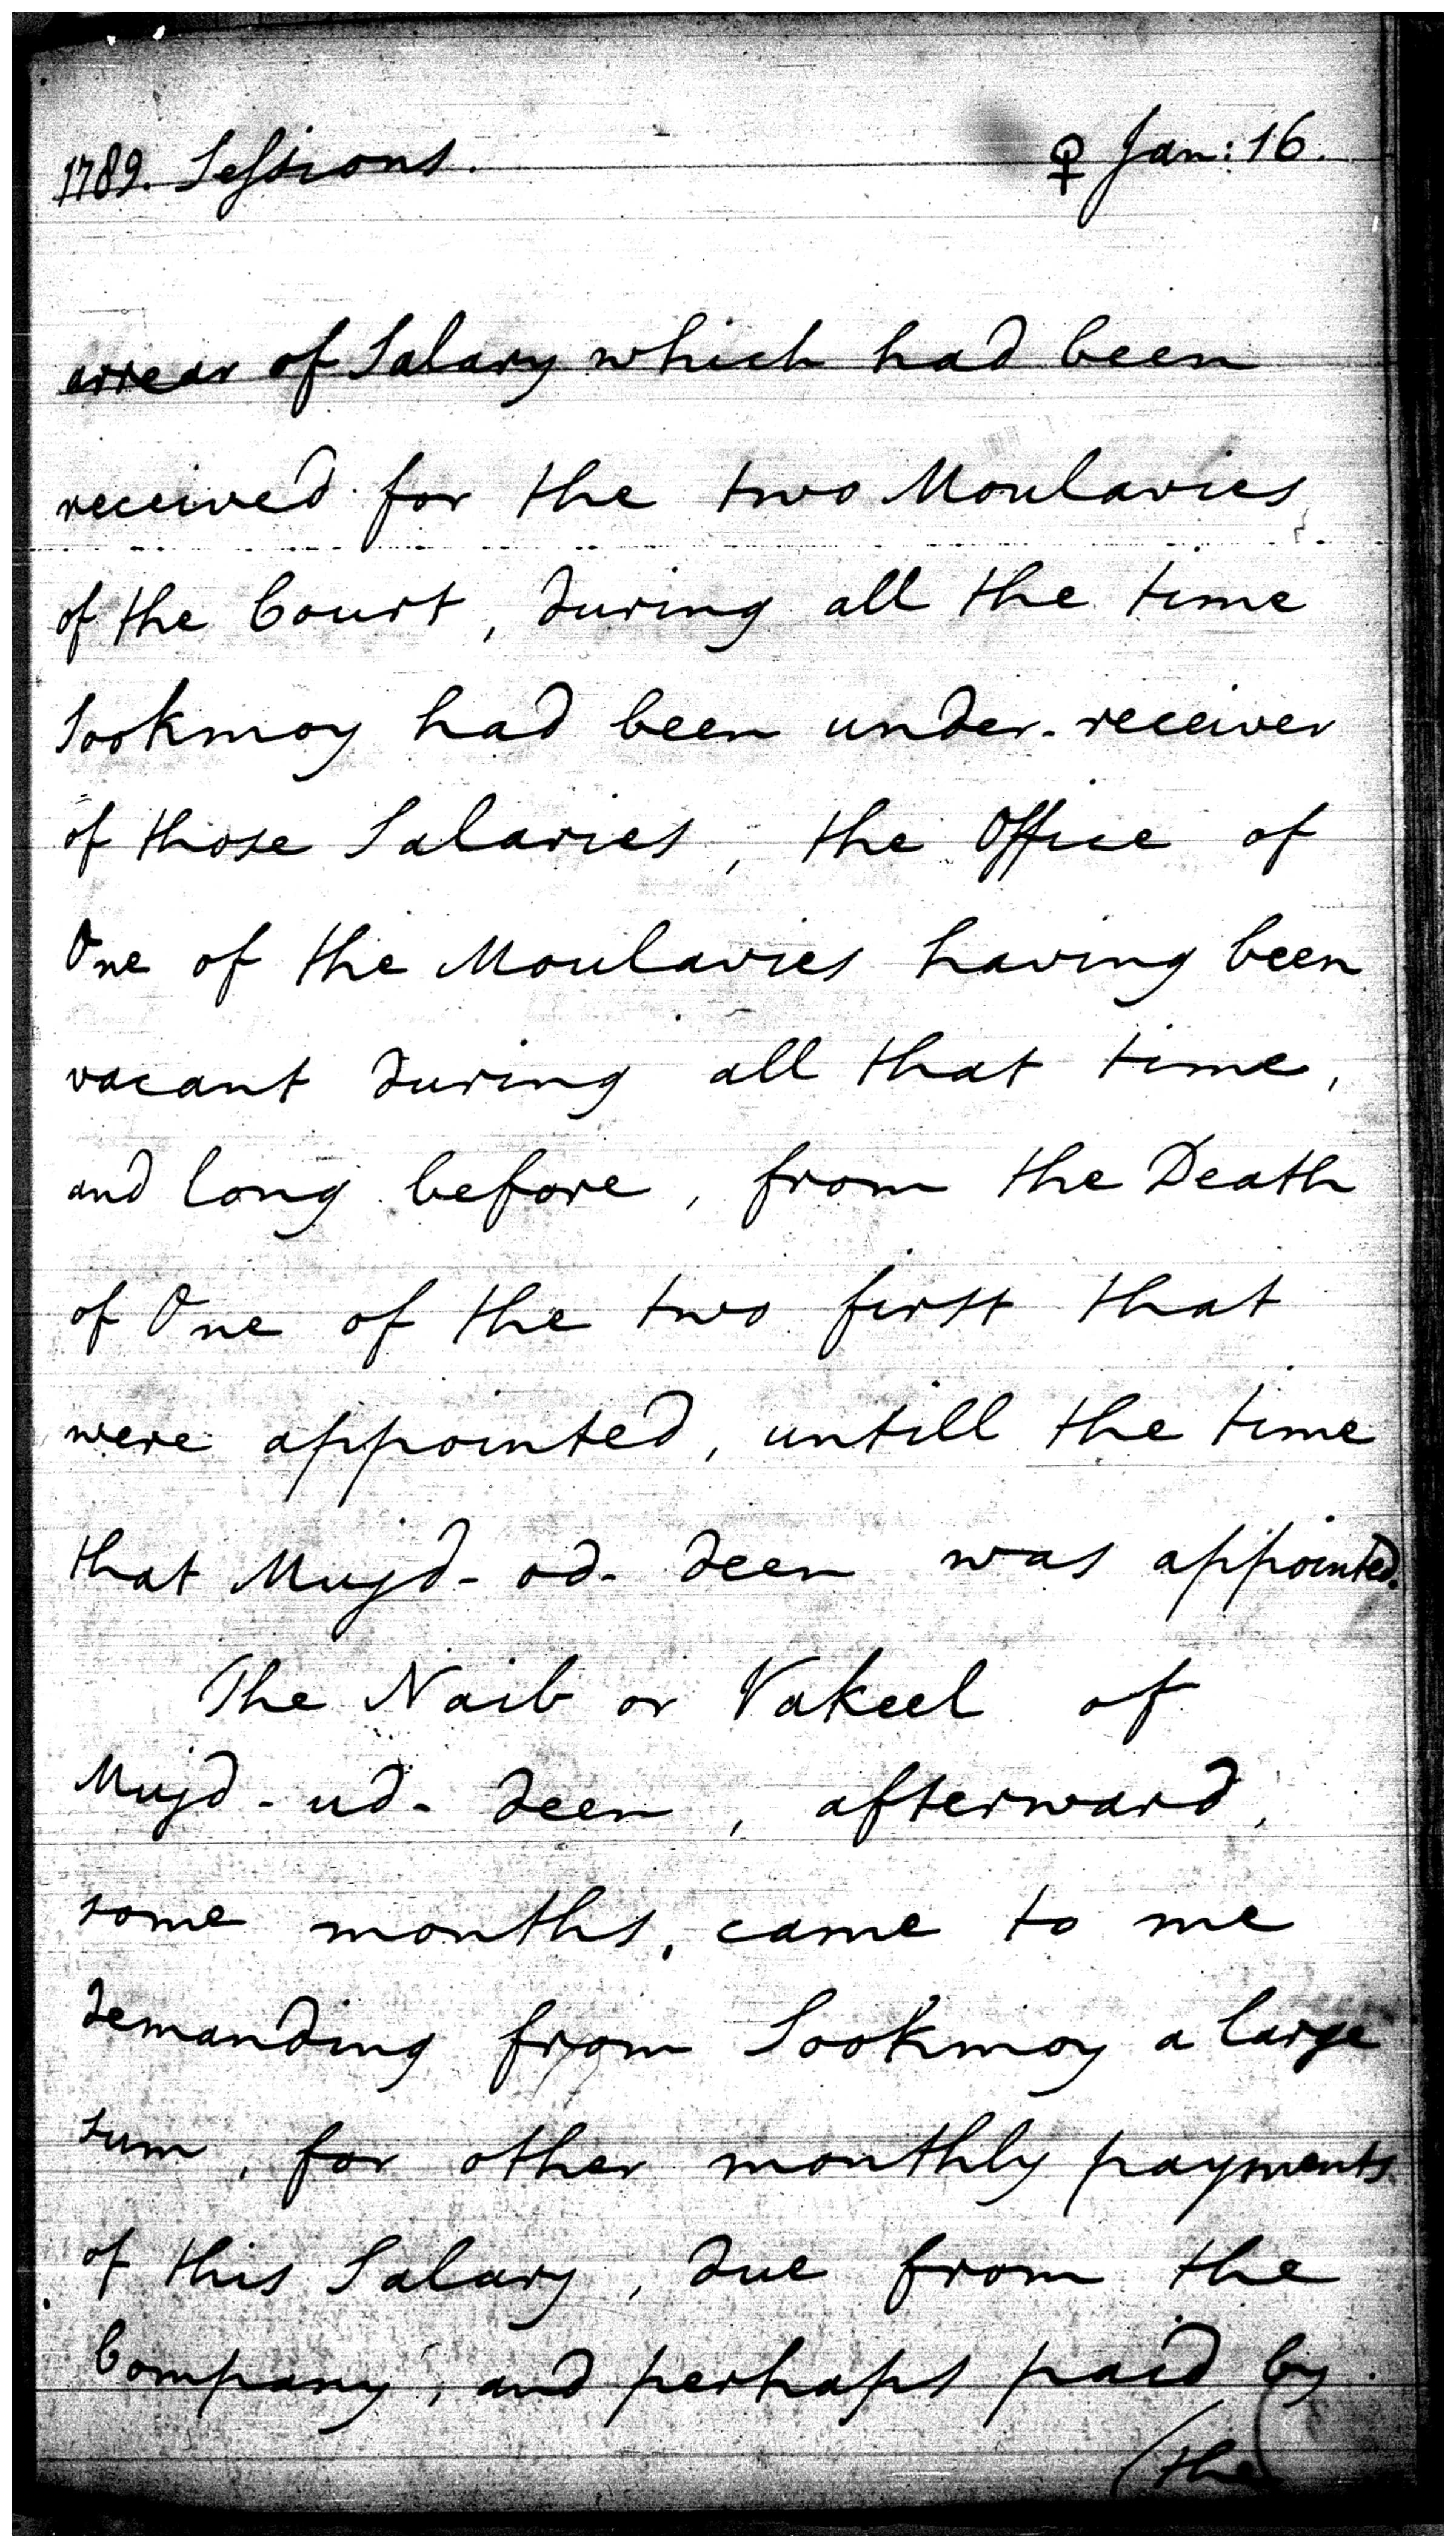 1789. Sessions. ♀ Jan: 16.
arrear of Salary which had been
received for the two Moulavies
of the Court, during all the time
Sookmoy had been under-receiver
of those Salaries, the Office of
One of the Moulavies having been
vacant during all that time,
and long before, from the Death
of One of the two first that
were appointed, untill the time
that Mujd-od-deen was appointed.
The Naib or Vakeel of
Mujd-ud-deen, afterward,
some months, came to me
demanding from Sookmoy a large
sum, for other monthly payments
of this Salary, due from the
Company, and perhaps paid by
(the